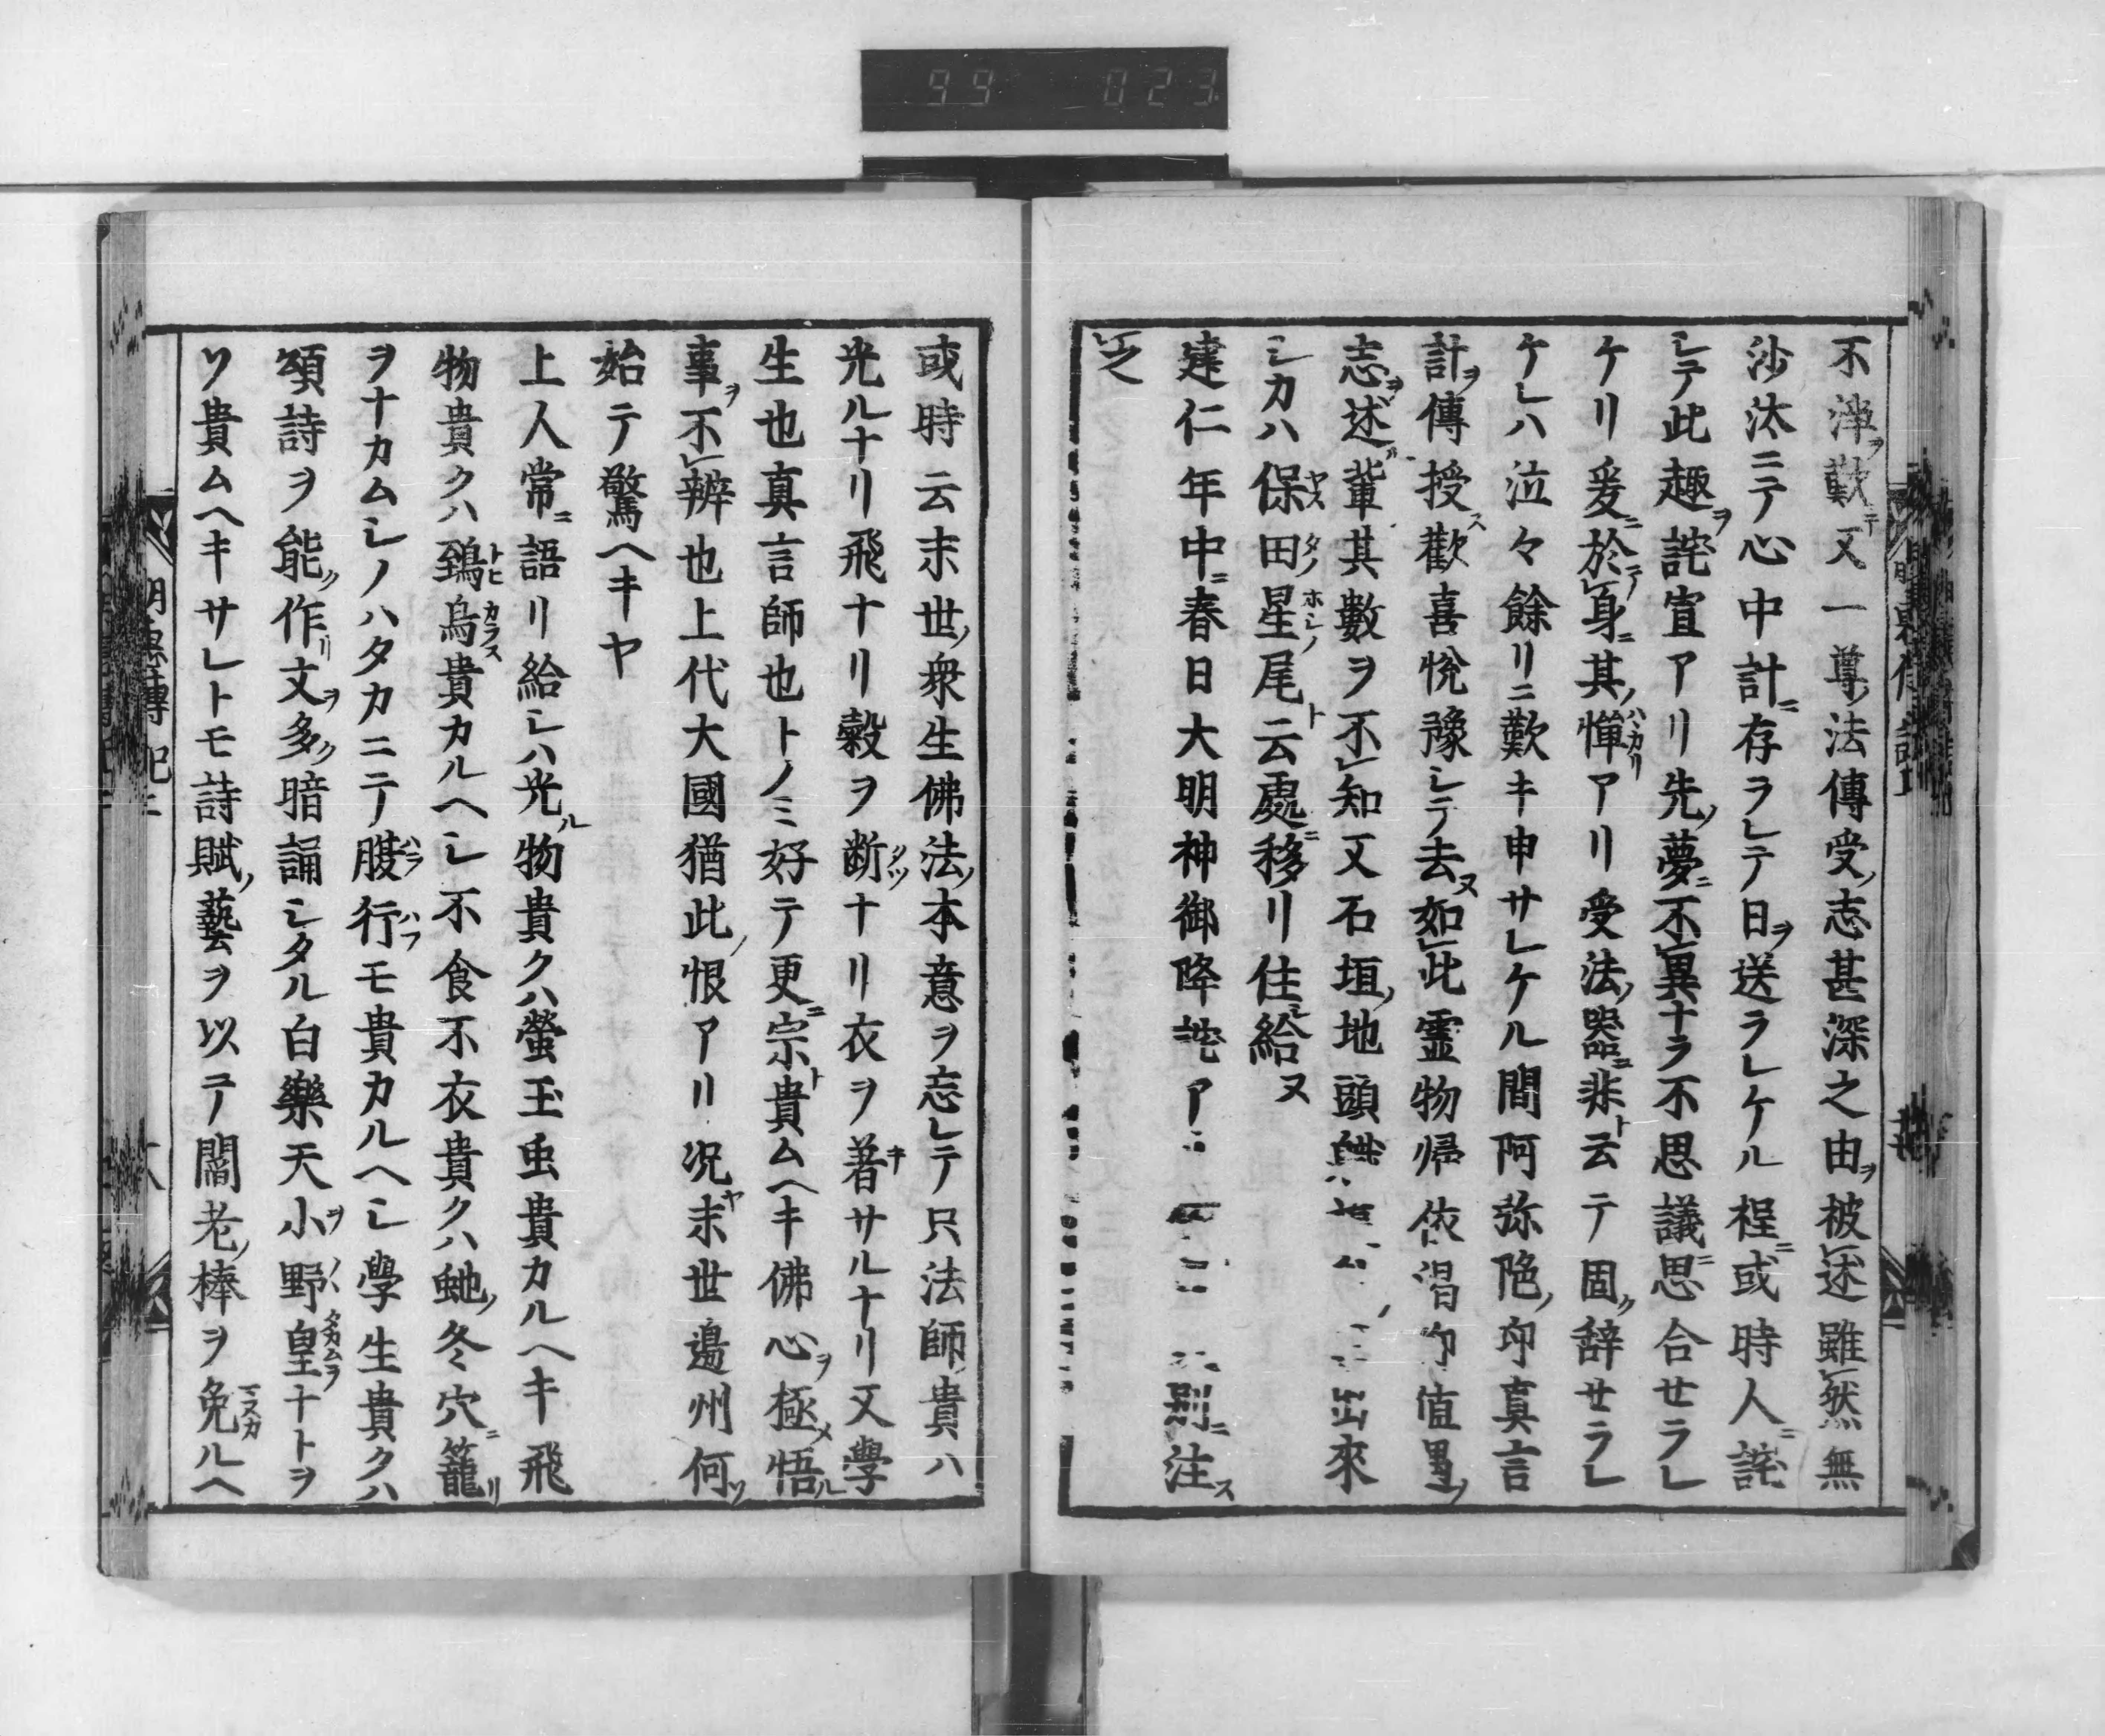 99 023
不淨ヲ歎テ又一尊ノ法傳受ノ志甚深之由ヲ被述雖然無
沙汰ニテ心中計ニ存ヲレテ日ヲ送ラレケル程ニ或時人ニ詫
シテ此趣ヲ詫宣アリ先ノ夢ニ不異ナラ不思議ニ思合セラレ
ケリ爰ニ於テ身ニ其ノ憚ハカリアリ受法ノ器ニ非ト云テ固ク辞セラレ
ケレハ泣々餘リニ歎キ申サレケル間阿弥陁ノ印真言
計ヲ傳授ス歡喜悅豫シテ去ヌ如此霊物帰依渇仰値遇ノ
志ヲ述ル輩其數ヲ不知又石垣ノ地頭 出來
シカハ保ヤス田タノ星ホシノ尾ト云處ニ移リ住シ給ヌ
建仁年中ニ春日大明神御降詫ア 別ニ注ス
之
或時云末世ノ衆生佛法ノ本意ヲ忘レテ只法師ノ貴ハ
光ルナリ飛ナリ穀ヲ断タツナリ衣ヲ著キサルナリ又學
生也真言師也トノミ好テ更ニ宗ト貴ムヘキ佛心ヲ極メ悟ル
事ヲ不辨也上代大國猶此ノ恨アリ况ヤ末世邊州何ソ
始テ驚ヘキヤ
上人常ニ語リ給シハ光ル物貴クハ螢玉虫貴カルヘキ飛
物貴クハ鵄トヒ烏カラス貴カルヘシ不食不衣貴クハ虵ノ冬穴ニ籠リ
ヲナカムシノハタカニテ腹ハラ行ハフモ貴カルヘシ學生貴クハ
頌詩ヲ能ク作リ文ヲ多ク暗誦シタル白樂天小ヲ野ノ皇タカムラナトヲ
ソ貴ムヘキサレトモ詩賦ノ藝ヲ以テ閻老ノ棒ヲ免マヌカルヘ
明惠傳記上
八